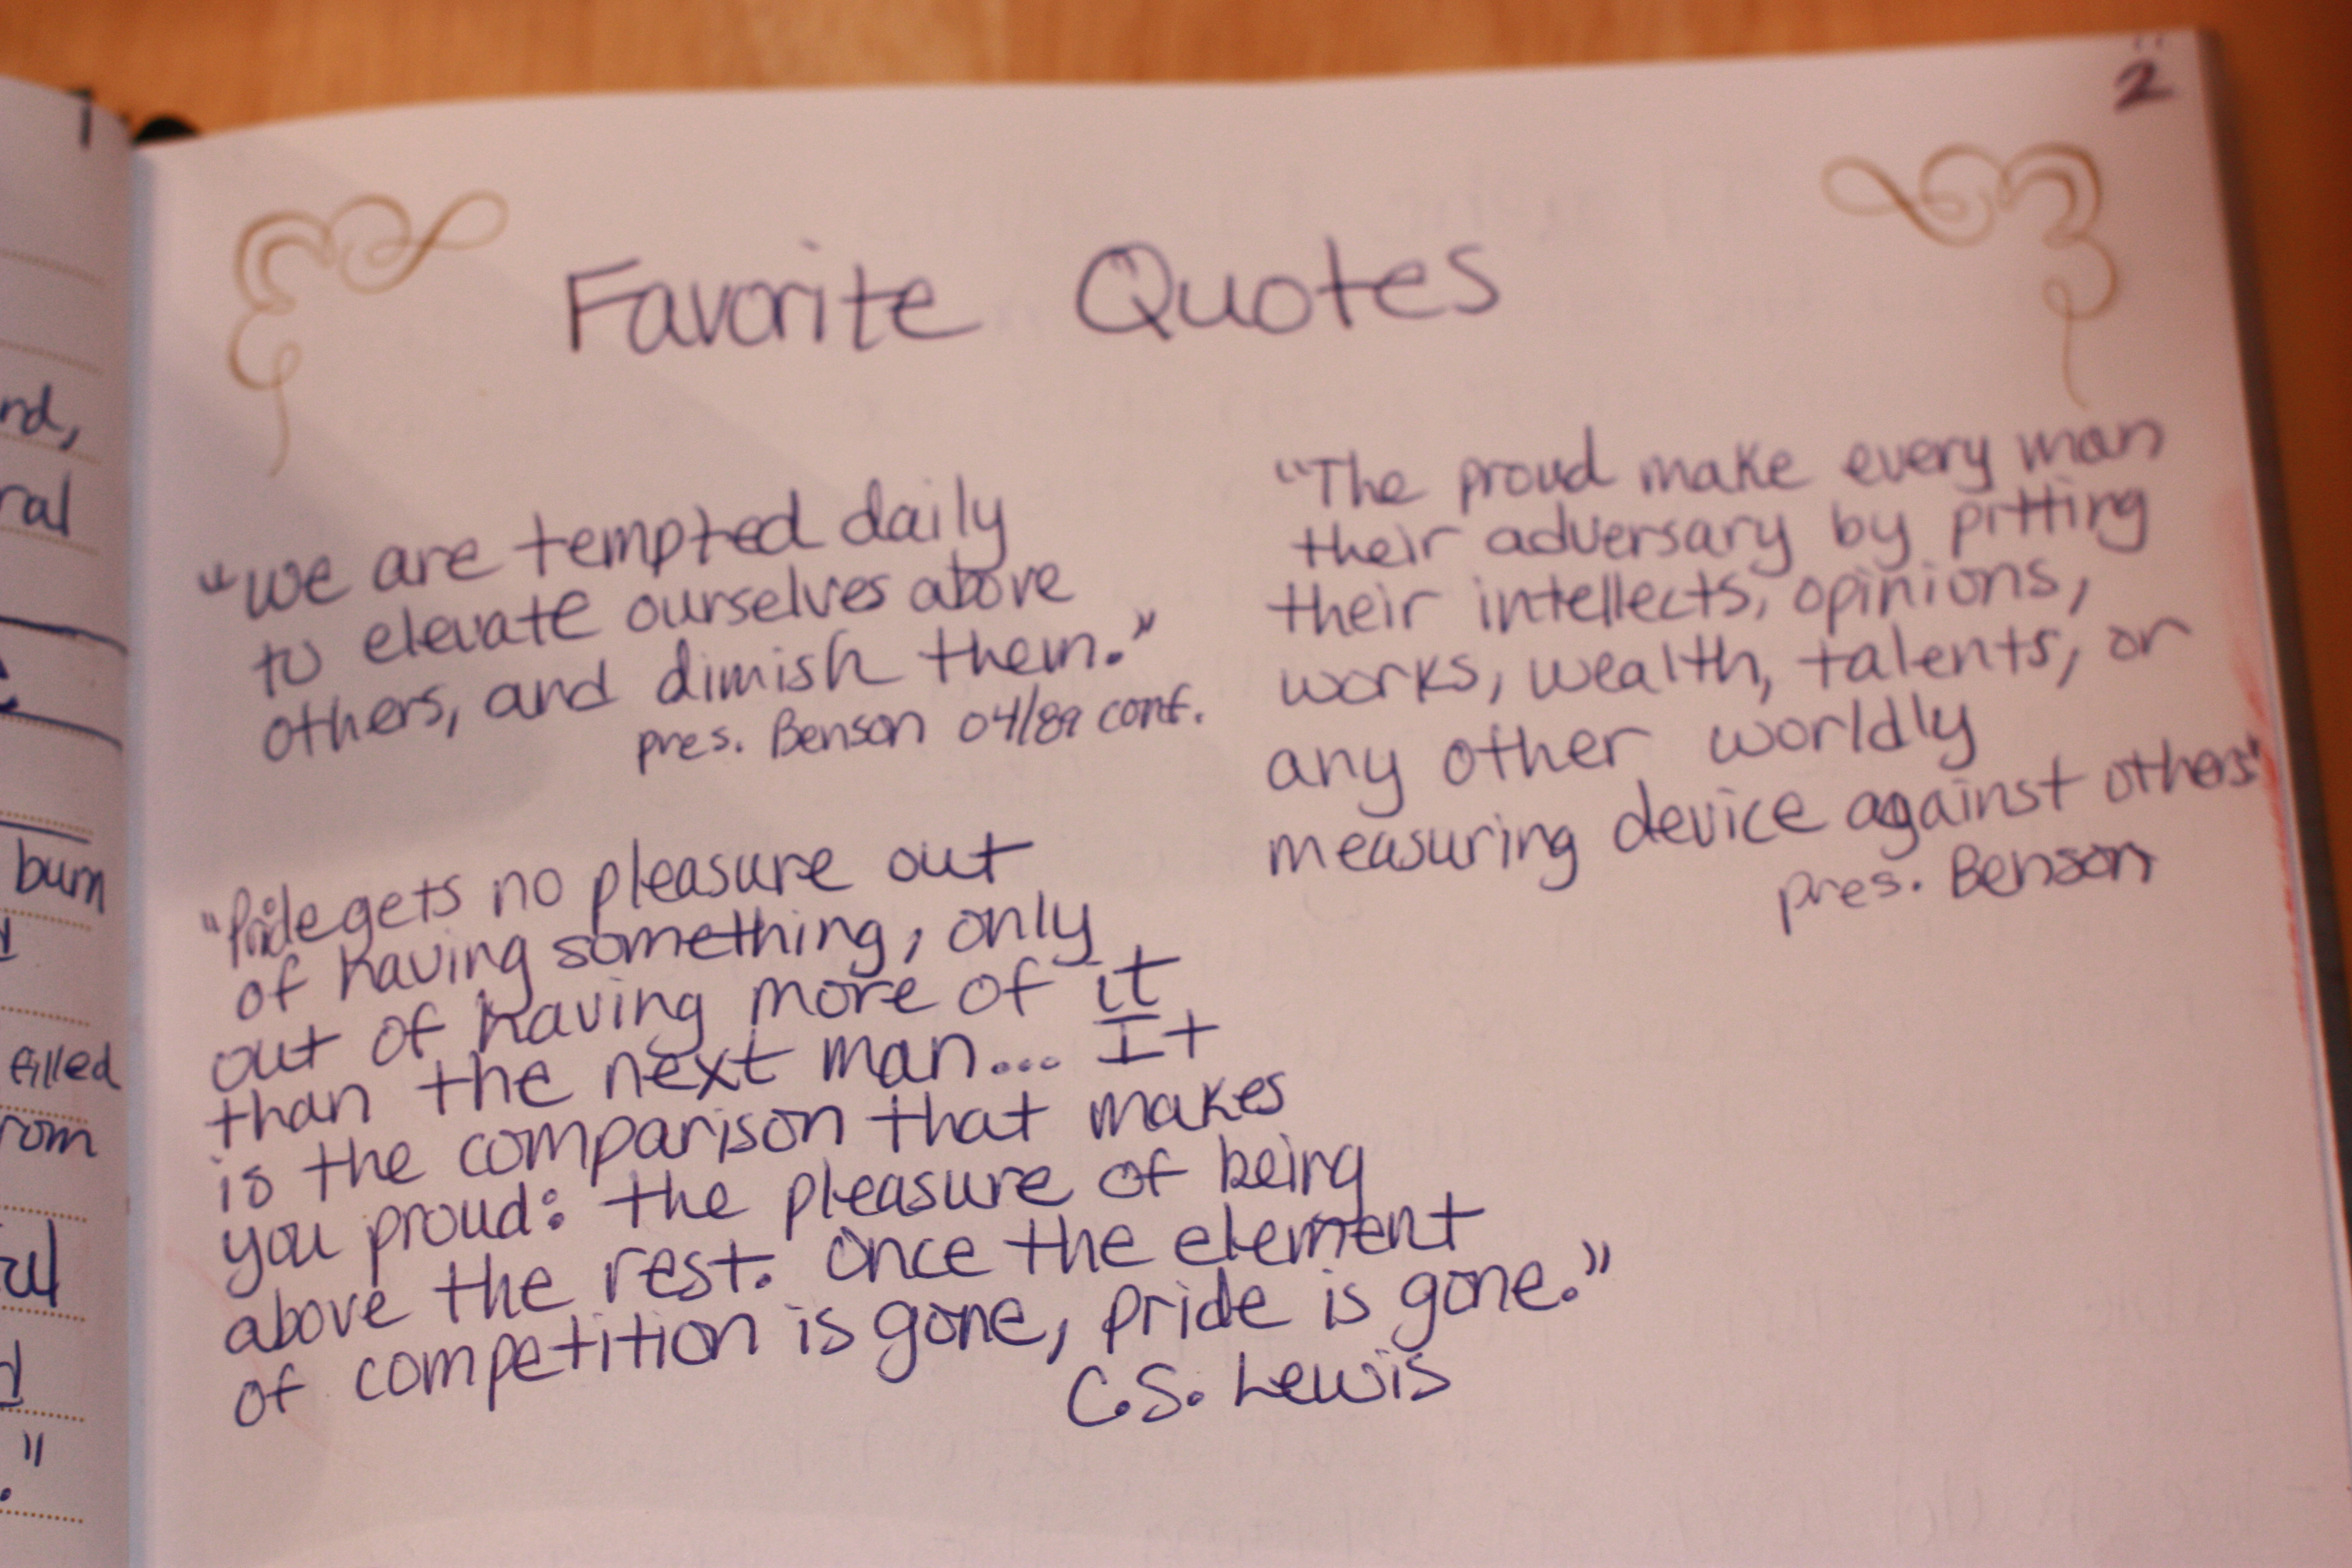 1
nd,
ral
burn
filled
rom
ul
d
."
2
Favorite Quotes
"We are tempted daily
to elevate ourselves above
others, and dimish them."
pres. Benson 04/89 conf.
"Pride gets no pleasure out
of having something, only
out of having more of it
than the next man... It
is the comparison that makes
you proud: the pleasure of being
above the rest. Once the element
of competition is gone, pride is gone."
C.S. Lewis
"The proud make every man
their adversary by pitting
their intellects, opinions,
works, wealth, talents, or
any other worldly
measuring device against others"
pres. Benson